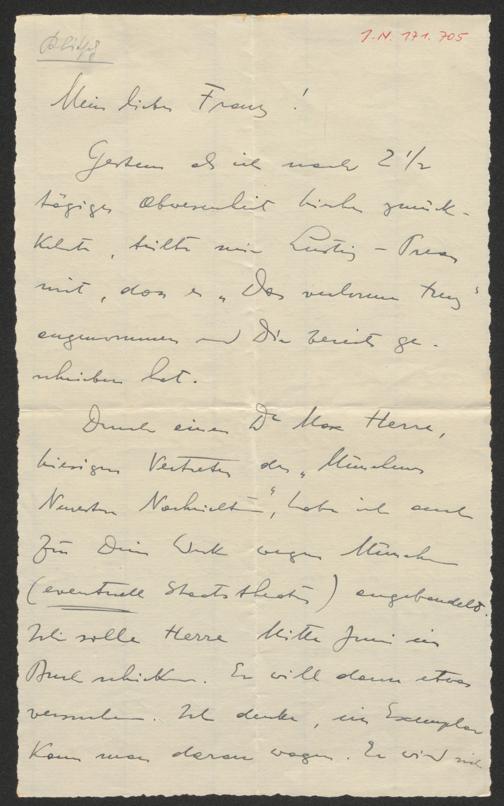 J.N. 171.705
Mein lieber Franz!
Gestern als ich nach 2 1/2
tägiger Abwesenheit hierher zurück-
kehrte, teilte mir Lustig-Prean
mit, dass er „Das verlorene Herz“
angenommen und Dir bereits ge-
schrieben hat.
Durch einen Dr Max Herre,
hiesigen Vertreter der „Münchner
Neuesten Nachrichten“, habe ich auch
für Dein Werk wegen München
(eventuell Staatstheater) angebandelt.
Ich solle Herre Mitte Juni ein
Buch schicken. Er will dann etwas
versuchen. Ich denke, ein Exemplar
kann man daran wagen. Er wird